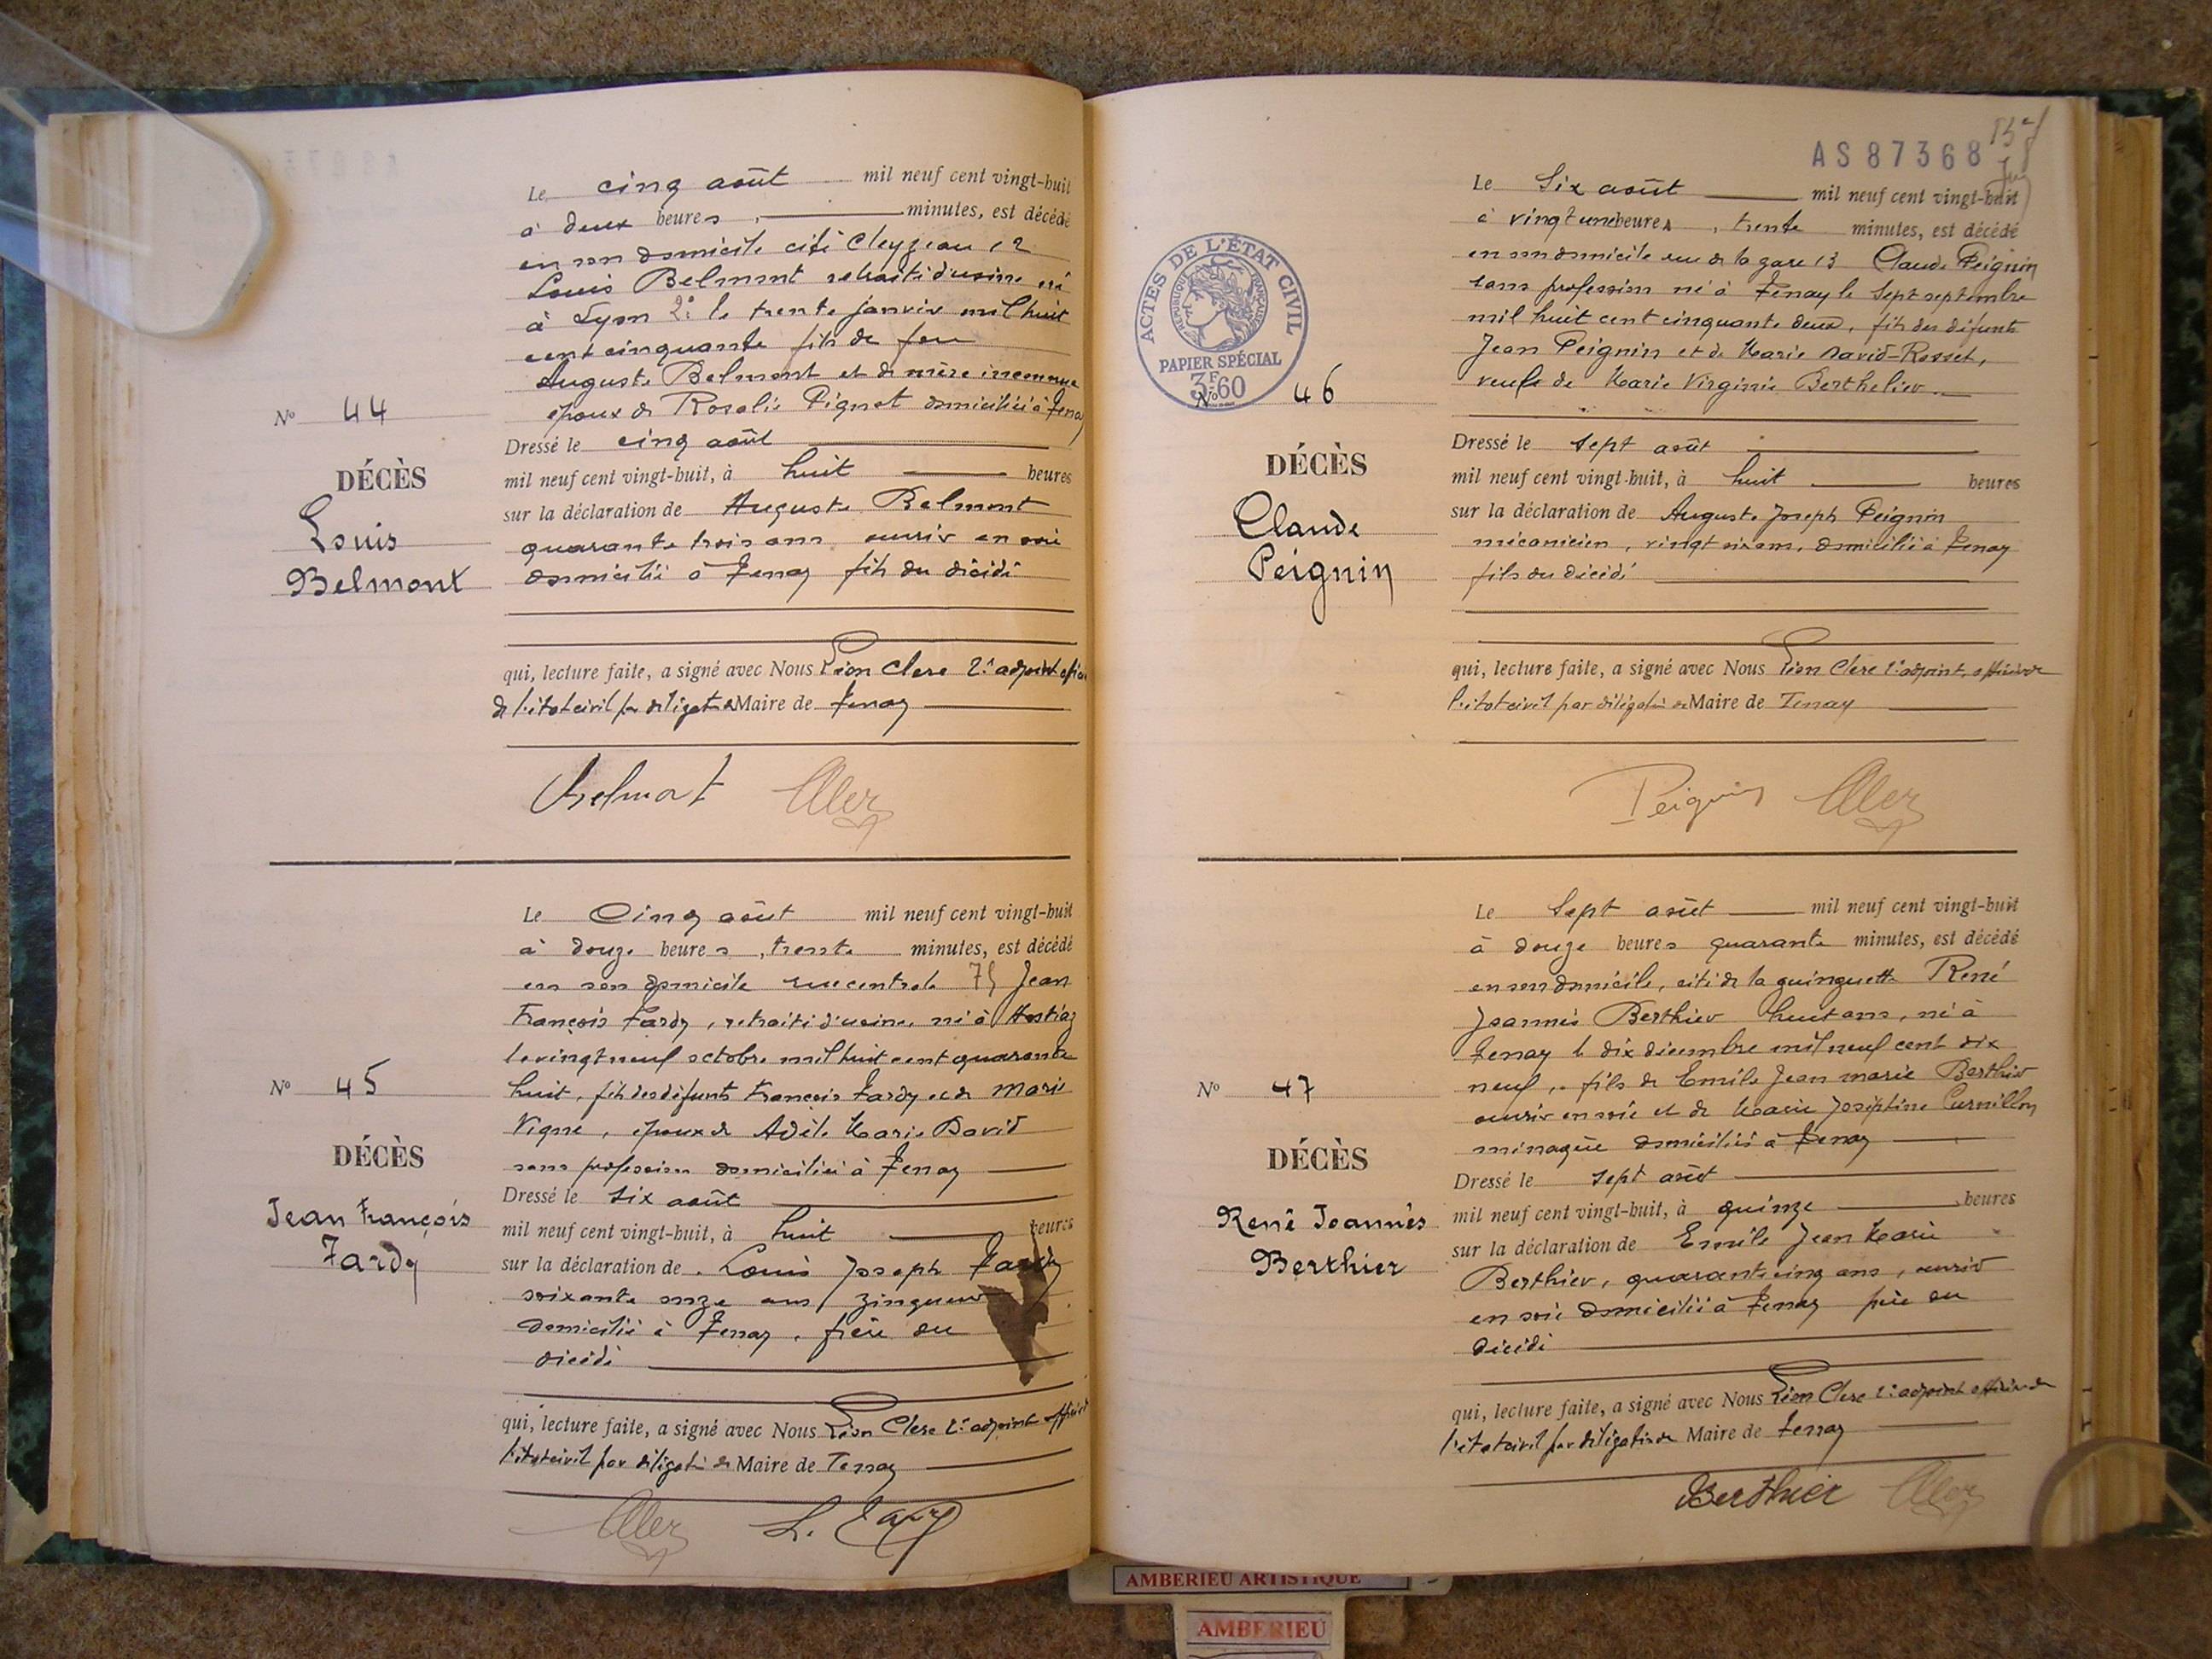 Le cinq août mil neuf cent vingt-huit
à deux heures, minutes, est décédé
en son domicile cité Cleyzeau 12
Louis Belmont retraité d'usine né
à Lyon 2e le trente janvier mil huit
cent cinquante fils de feu
Auguste Belmont et de mère inconnue
époux de Rosalie Pignot domiciliée à Tenay
No 44
DÉCÈS
Louis
Belmont
Dressé le cinq août
mil neuf cent vingt-huit, à huit heures
sur la déclaration de Auguste Belmont
quarante trois ans ouvrier en soie
domicilié à Tenay fils du décédé
qui, lecture faite, a signé avec Nous Léon Clerc 2e adjoint officier
de l'état civil par délégation du Maire de Tenay
Belmont
Clerc
Le Cinq août mil neuf cent vingt-huit
à douze heures, trente minutes, est décédé
en son domicile rue centrale 75 Jean
François Tardy, retraité d'usine, né à Hostiaz
le vingt neuf octobre mil huit cent quarante
huit, fils des défunts François Tardy et de Marie
Vigne, époux de Adèle Marie David
sans profession domiciliée à Tenay
No 45
DÉCÈS
Jean François
Tardy
Dressé le six août
mil neuf cent vingt-huit, à huit heures
sur la déclaration de Louis Joseph Tardy
soixante onze ans, zingueur
domicilié à Tenay, frère du
décédé
qui, lecture faite, a signé avec Nous Léon Clerc 2e adjoint officier
l'état civil par délégation du Maire de Tenay
Clerc
L. Tardy
AS 87368
ACTES DE L'ÉTAT CIVIL
RÉPUBLIQUE FRANÇAISE
PAPIER SPÉCIAL
3F.60
Le Six août mil neuf cent vingt-huit
à vingt une heures, trente minutes, est décédé
en son domicile rue de la gare 13 Claude Peignin
sans profession né à Tenay le sept septembre
mil huit cent cinquante deux, fils des défunts
Jean Peignin et de Marie David-Rosset,
veuf de Marie Virginie Berthelier
No 46
DÉCÈS
Claude
Peignin
Dressé le sept août
mil neuf cent vingt-huit, à huit heures
sur la déclaration de Auguste Joseph Peignin
mécanicien, vingt six ans, domicilié à Tenay
fils du décédé
qui, lecture faite, a signé avec Nous Léon Clerc 2e adjoint, officier de
l'état civil par délégation du Maire de Tenay
Peignin
Clerc
Le Sept août mil neuf cent vingt-huit
à douze heures quarante minutes, est décédé
en son domicile, cité de la guinguette René
Joannès Berthier huit ans, né à
Tenay le dix décembre mil neuf cent dix
neuf, fils de Emile Jean Marie Berthier
ouvrier en soie et de Marie Joséphine Curnillon
ménagère domiciliés à Tenay
No 47
DÉCÈS
René Joannès
Berthier
Dressé le sept août
mil neuf cent vingt-huit, à quinze heures
sur la déclaration de Emile Jean Marie
Berthier, quarante cinq ans, ouvrier
en soie domicilié à Tenay père du
décédé
qui, lecture faite, a signé avec Nous Léon Clerc 2e adjoint officier de
l'état civil par délégation du Maire de Tenay
Berthier
Clerc
AMBERIEU ARTISTIQUE
AMBERIEU